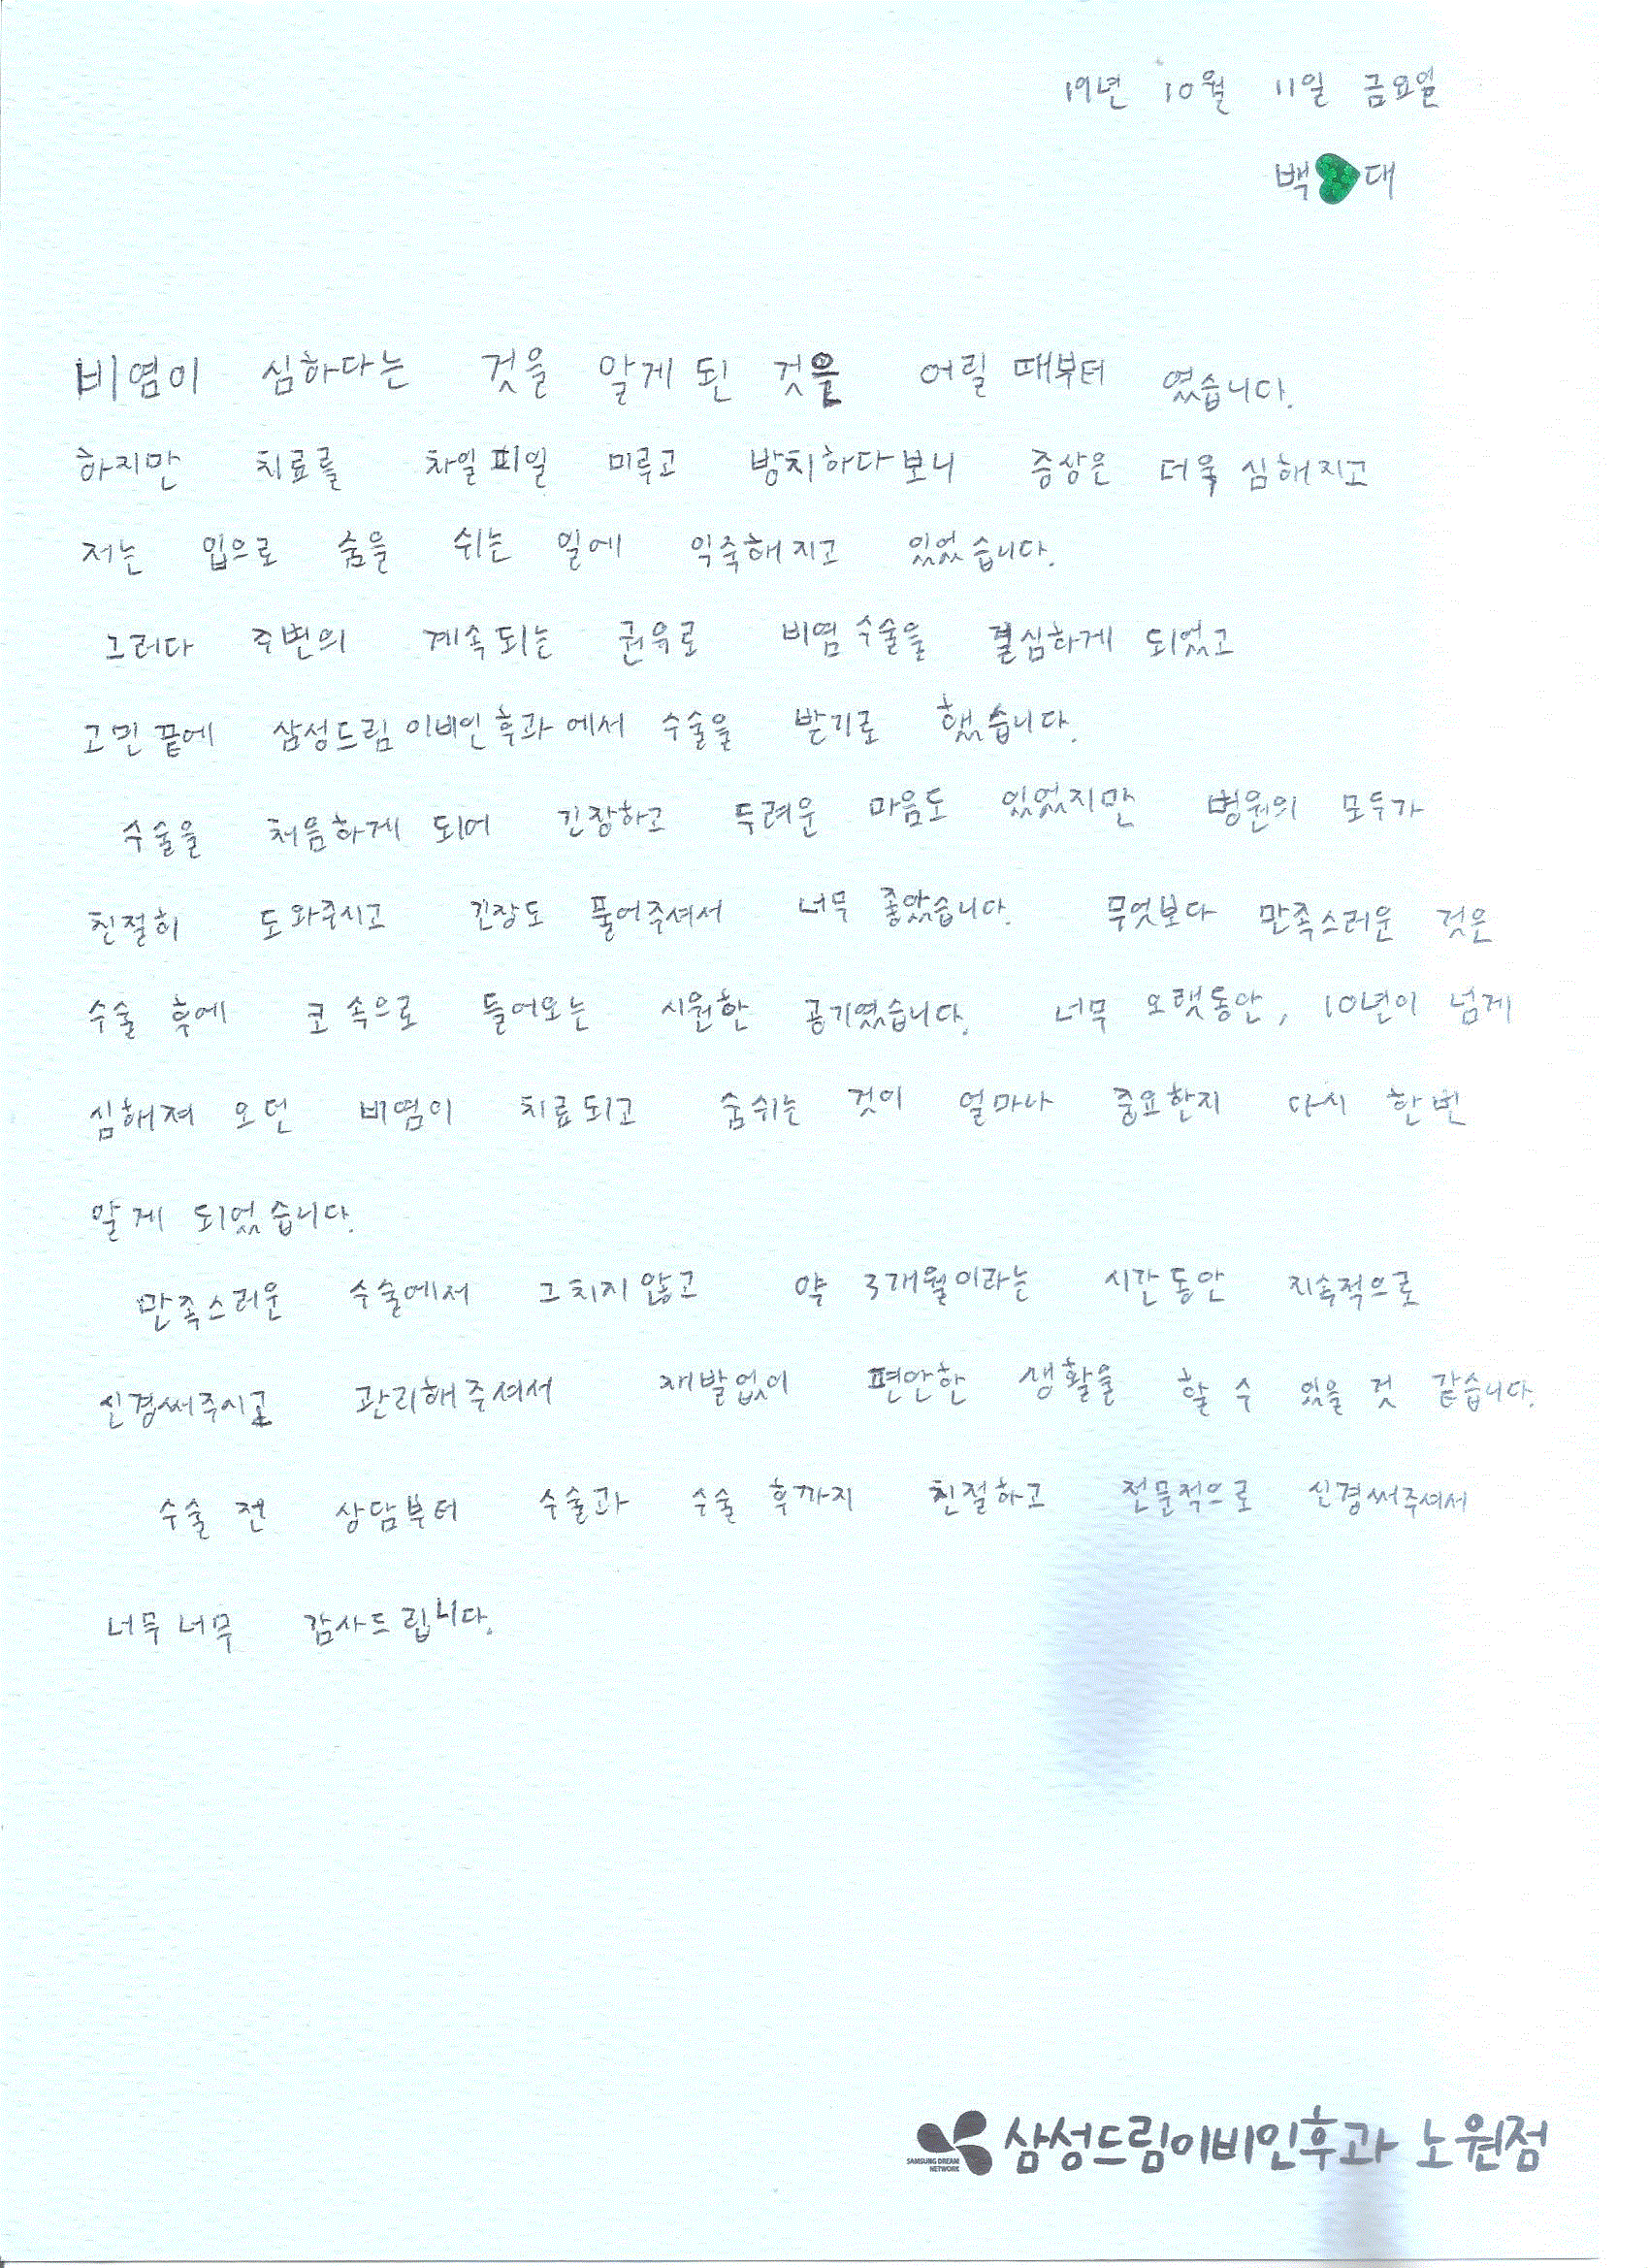 19년 10월 11일 금요일
백 대
비염이 심하다는 것을 알게 된 것은 어릴 때부터 였습니다.
하지만 치료를 차일피일 미루고 방치하다보니 증상은 더욱 심해지고
저는 입으로 숨을 쉬는 일에 익숙해지고 있었습니다.
그러다 주변의 계속되는 권유로 비염수술을 결심하게 되었고
고민끝에 삼성드림이비인후과에서 수술을 받기로 했습니다.
수술을 처음하게 되어 긴장하고 두려운 마음도 있었지만 병원의 모두가
친절히 도와주시고 긴장도 풀어주셔서 너무 좋았습니다. 무엇보다 만족스러운 것은
수술 후에 코 속으로 들어오는 시원한 공기였습니다. 너무 오랫동안, 10년이 넘게
심해져 오던 비염이 치료되고 숨쉬는 것이 얼마나 중요한지 다시 한번
알게 되었습니다.
만족스러운 수술에서 그치지않고 약 3개월이라는 시간동안 지속적으로
신경써주시고 관리해주셔서 재발없이 편안한 생활을 할 수 있을 것 같습니다.
수술 전 상담부터 수술과 수술 후까지 친절하고 전문적으로 신경써주셔서
너무너무 감사드립니다.
삼성드림이비인후과 노원점
SAMSUNG DREAM
NETWORK